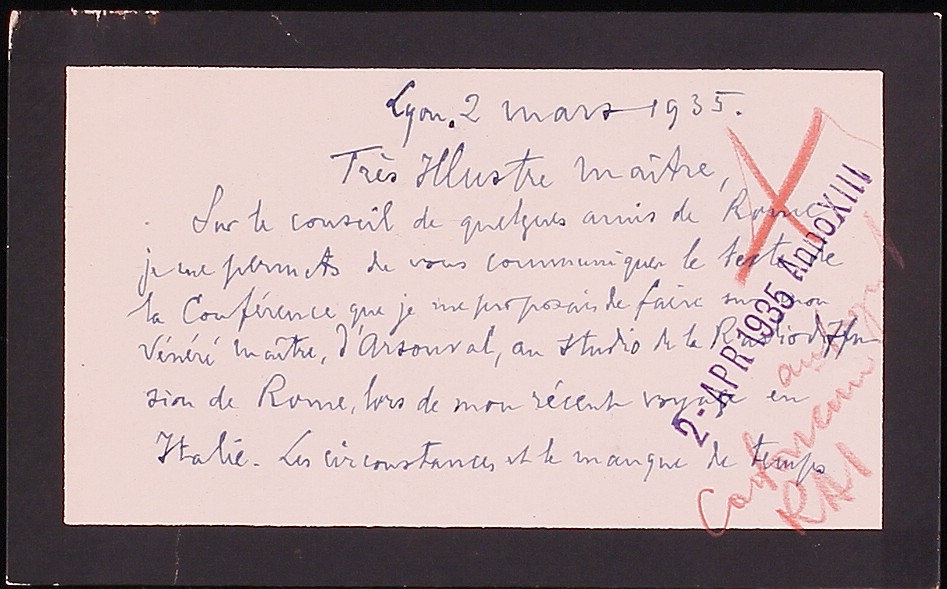 Lyon, 2 mars 1935.
Très Illustre Maître,
Sur le conseil de quelques amis de Rome
je me permets de vous communiquer le texte de
la Conférence que je me proposais de faire sur mon
Vénéré Maître, d'Arsonval, au studio de la Radiodiffu
sion de Rome, lors de mon récent voyage en
Italie. Les circonstances et le manque de temps
2-APR 1935 AnnoXIII
RAI